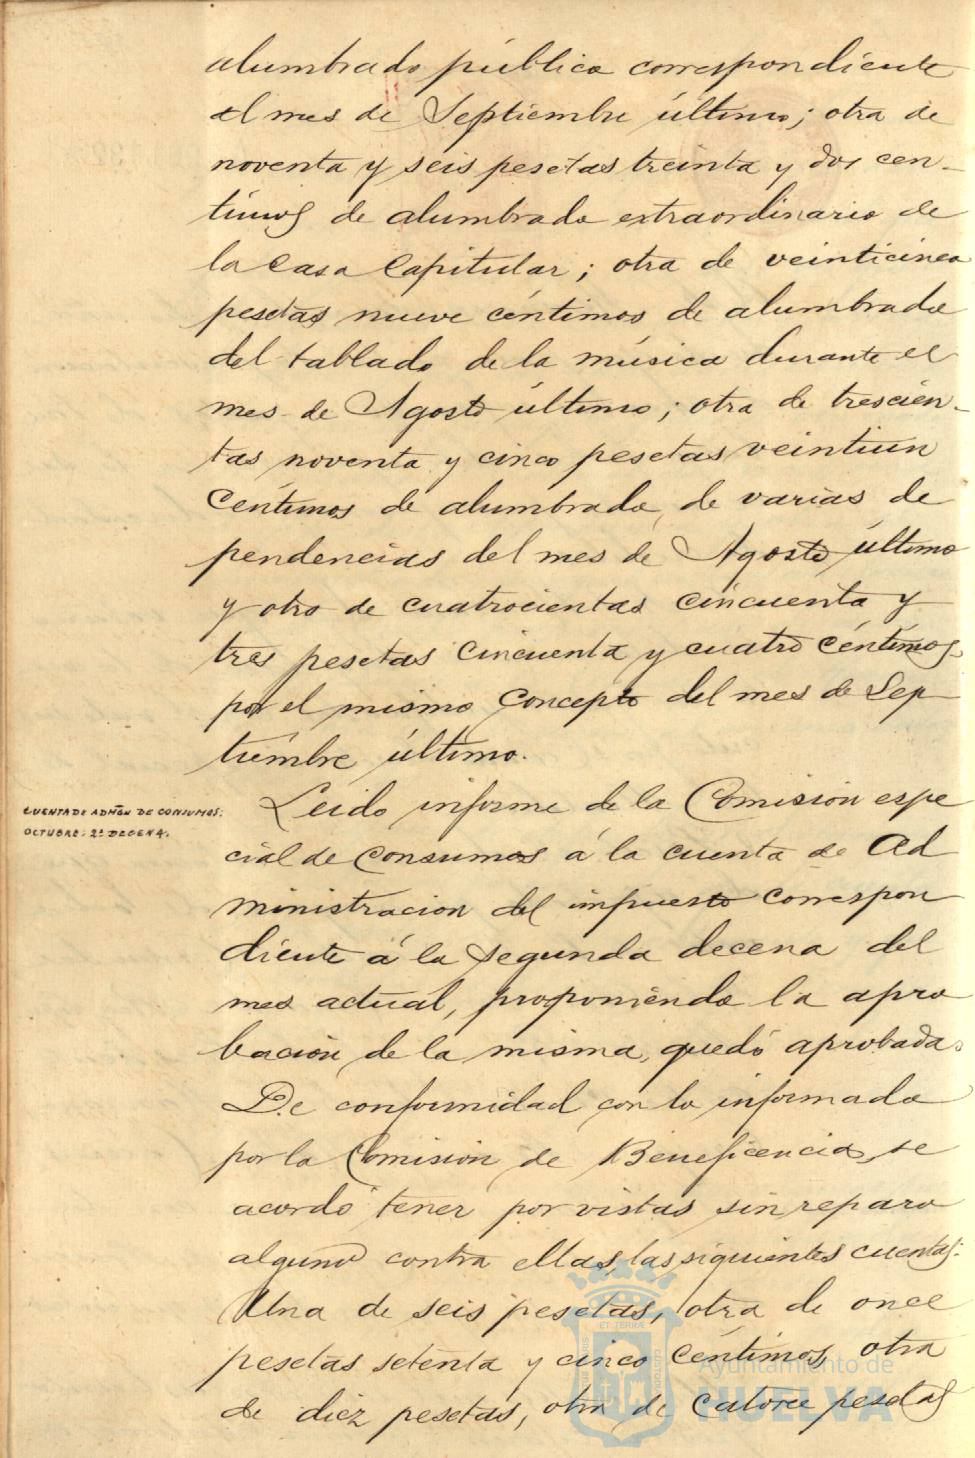 alumbrado público correspondiente
al mes de Septiembre último; otra de
noventa y seis pesetas treinta y dos cen-
timos de alumbrado extraordinario de
la Casa Capitular; otra de veinticinco
pesetas nueve céntimos de alumbrado
del tablado de la música durante el
mes de Agosto último; otra de trescien-
tas noventa y cinco pesetas veintiun
Centimos de alumbrado, de varias de
pendencias del mes de Agosto último
y otro de cuatrocientas cincuenta y
tres pesetas cincuenta y cuatro céntimos
por el mismo concepto del mes de Sep
tiembre último.
CUENTA DE ADMÓN DE CONSUMOS:
OCTUBRE: 2ª DECENA.
Leido informe de la Comisión espe
cial de Consumos á la cuenta de Ad
ministracion del impuesto correspon
diente á la segunda decena del
mes actual, proponiendo la apro
bación de la misma, quedó aprobada.
De conformidad con lo informado
por la Comisión de Beneficencia, se
acordó tener por vistas sin reparo
alguno contra ellas, las siguientes cuentas:
Una de seis pesetas, otra de once
pesetas setenta y cinco céntimos, otra
de diez pesetas, otra de catorce pesetas
Ayuntamiento de
HUELVA